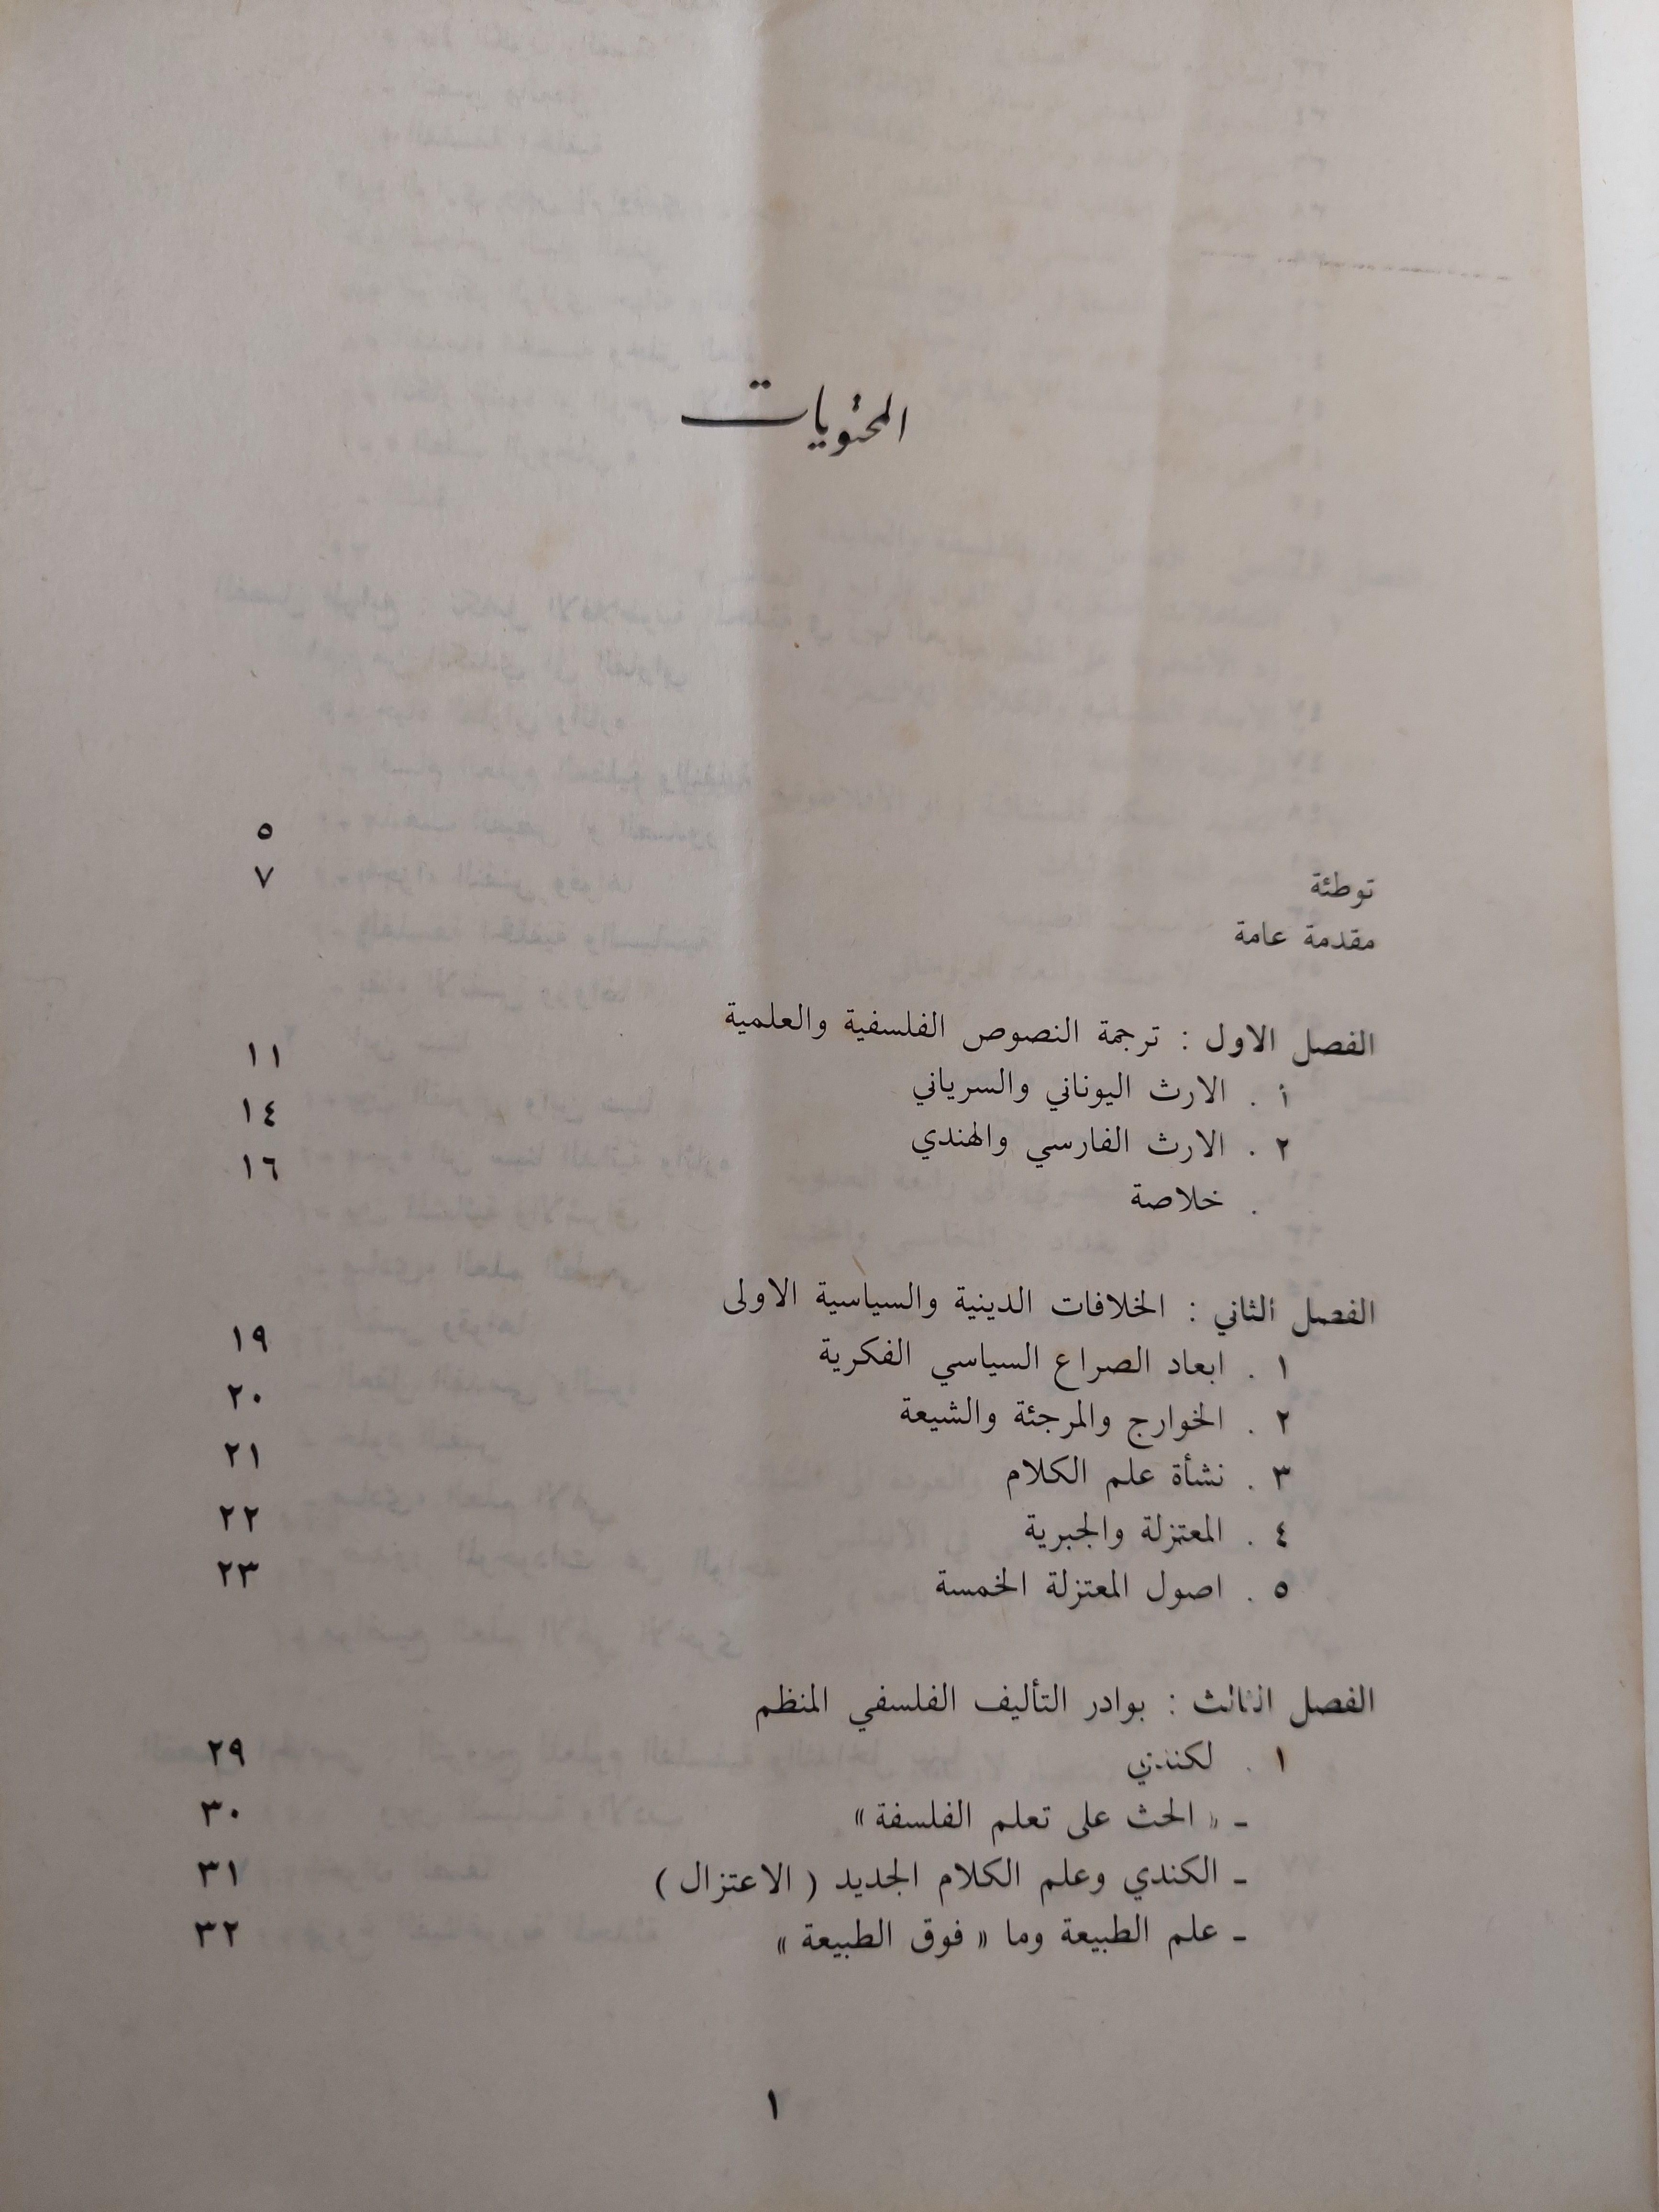 المحتويات
توطئة ٥
مقدمة عامة ٧
الفصل الاول : ترجمة النصوص الفلسفية والعلمية
أ . الارث اليوناني والسرياني ١١
٢ . الارث الفارسي والهندي ١٤
. خلاصة ١٦
الفصل الثاني : الخلافات الدينية والسياسية الاولى
١ . ابعاد الصراع السياسي الفكرية ١٩
٢ . الخوارج والمرجئة والشيعة ٢٠
٣ . نشأة علم الكلام ٢١
٤ . المعتزلة والجبرية ٢٢
٥ . اصول المعتزلة الخمسة ٢٣
الفصل الثالث : بوادر التأليف الفلسفي المنظم
١ . لكندي ٢٩
ـ « الحث على تعلم الفلسفة » ٣٠
ـ الكندي وعلم الكلام الجديد ( الاعتزال ) ٣١
ـ علم الطبيعة وما « فوق الطبيعة » ٣٢
١